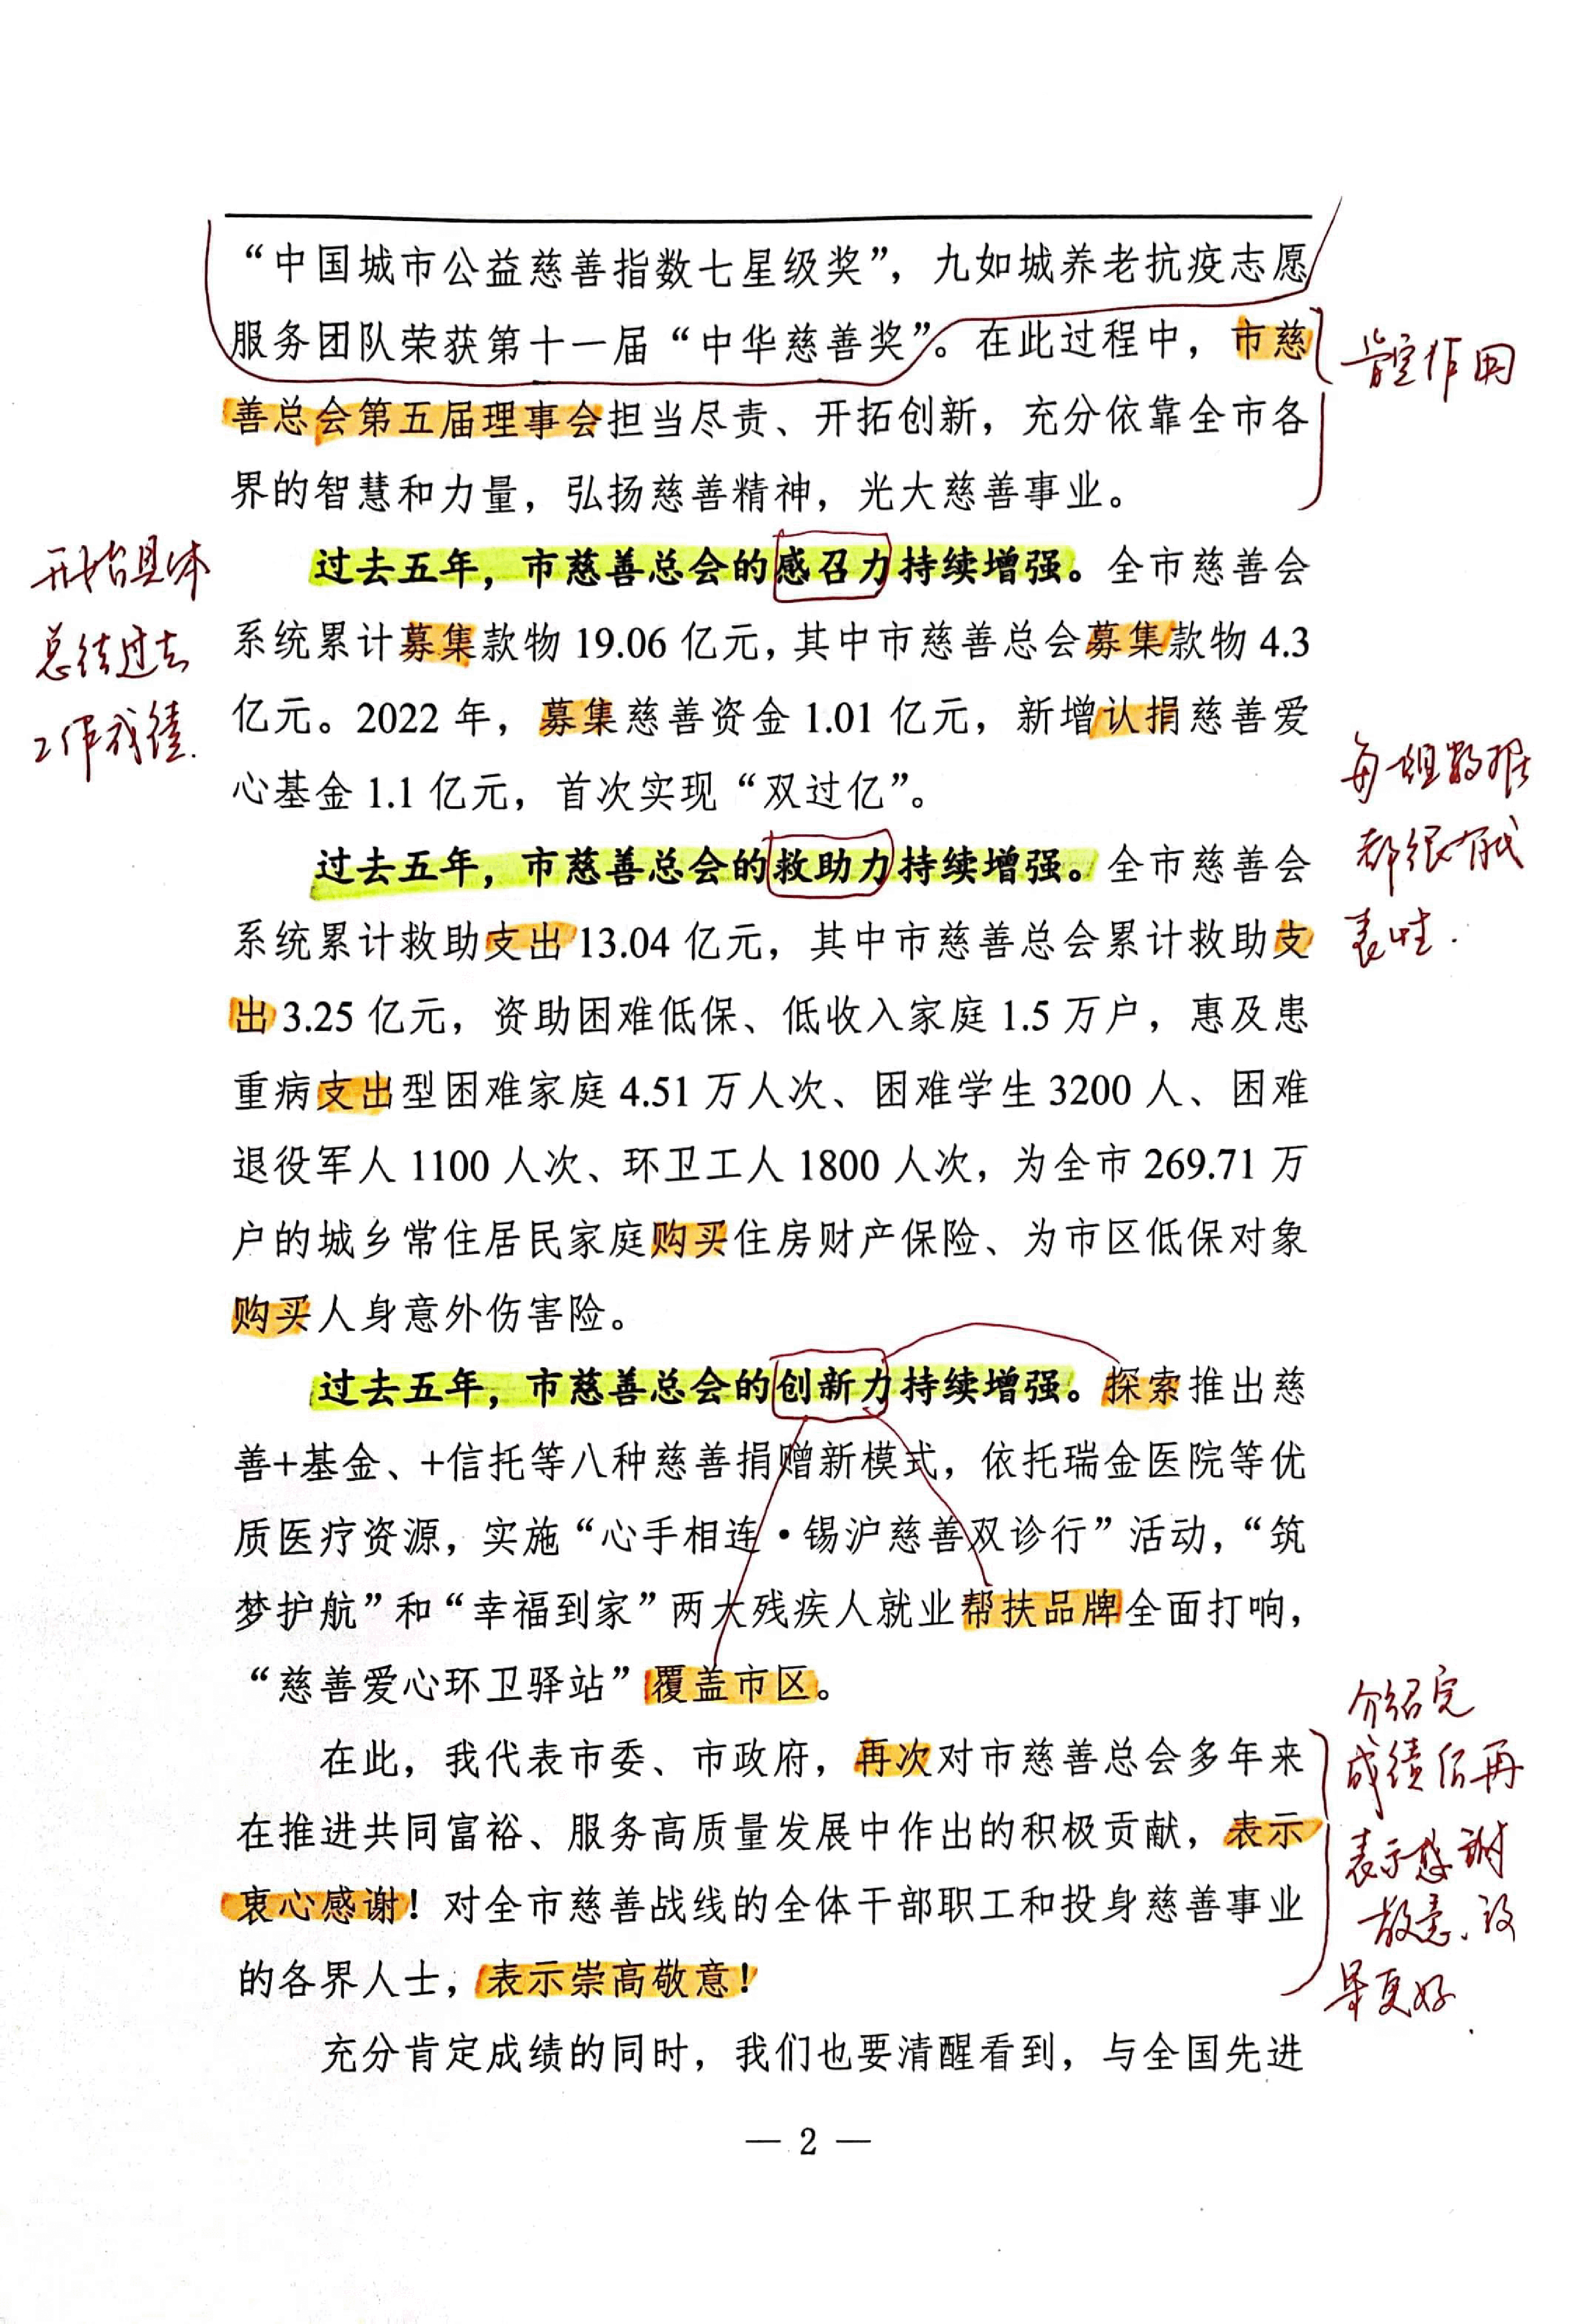 “中国城市公益慈善指数七星级奖”，九如城养老抗疫志愿
服务团队荣获第十一届“中华慈善奖”。在此过程中，市慈
善总会第五届理事会担当尽责、开拓创新，充分依靠全市各
界的智慧和力量，弘扬慈善精神，光大慈善事业。
肯定作用
过去五年，市慈善总会的感召力持续增强。全市慈善会
系统累计募集款物 19.06 亿元，其中市慈善总会募集款物 4.3
亿元。2022 年，募集慈善资金 1.01 亿元，新增认捐慈善爱
心基金 1.1 亿元，首次实现“双过亿”。
开始具体
总结过去
工作成绩.
过去五年，市慈善总会的救助力持续增强。全市慈善会
系统累计救助支出 13.04 亿元，其中市慈善总会累计救助支
出 3.25 亿元，资助困难低保、低收入家庭 1.5 万户，惠及患
重病支出型困难家庭 4.51 万人次、困难学生 3200 人、困难
退役军人 1100 人次、环卫工人 1800 人次，为全市 269.71 万
户的城乡常住居民家庭购买住房财产保险、为市区低保对象
购买人身意外伤害险。
每一组数据
都很有代
表性.
过去五年，市慈善总会的创新力持续增强。探索推出慈
善+基金、+信托等八种慈善捐赠新模式，依托瑞金医院等优
质医疗资源，实施“心手相连·锡沪慈善双诊行”活动，“筑
梦护航”和“幸福到家”两大残疾人就业帮扶品牌全面打响，
“慈善爱心环卫驿站”覆盖市区。
在此，我代表市委、市政府，再次对市慈善总会多年来
在推进共同富裕、服务高质量发展中作出的积极贡献，表示
衷心感谢！对全市慈善战线的全体干部职工和投身慈善事业
的各界人士，表示崇高敬意！
介绍完
成绩后再
表示感谢
敬意、效
果更好
充分肯定成绩的同时，我们也要清醒看到，与全国先进
— 2 —